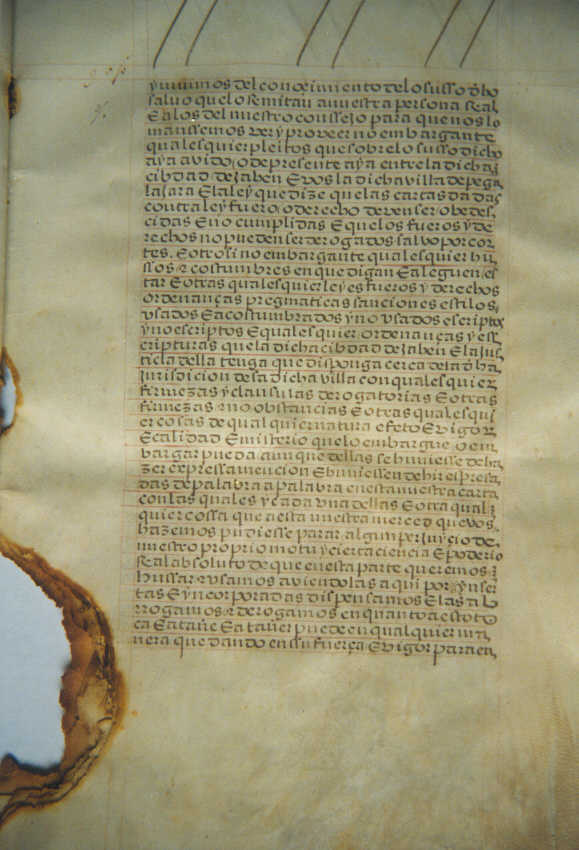 ynivimos del conoximiento de lo suso dho
salvo que lo semitan a nuestra persona Real
E a los del nuestro consejo para que nos lo
manssemos ver y proveer no embargante
quales quier pleitos que sobre lo susso dicho
aya avido, o de presente aya entre la dicha
cibdad de Jahen E vos la dicha villa de pega
lajara E la ley que dize que las cartas dadas
contra ley fuero, o derecho deven ser obedes
cidas E no cumplidas E que los fueros y de
rechos no pueden ser derogados salvo por cor
tes. E otrosi no embargante quales quier hu
ssos & costumbres en que digan E aleguen, es
tar E otras quales quier leyes fueros y derechos
ordenanças pregmaticas sanciones estilos,
vsados E acostumbrados y no vsados escriptos
y no escriptos E quales quier, ordenanças y ess
cripturas que la dicha cibdad de Jahen E la jus
ticia della tenga que disponga cerca de la dha
Jurisdicion desa dicha villa con quales quier
firmezas y clausulas derogatorias E otras
firmezas & no obstancias E otras quales qui
er cosas de qual quier natura efeto E vigor
E calidad E misterio que lo embargue o em
bargar pueda aun que dellas se huviesse de ha
zer expressa mencion E huviessen de hir espresa
das de palabra a palabra en esta nuestra carta
con las quales y cada vna dellas E otra qual
quier cossa que a esta nuestra merced que vos
hazemos pudiesse parar algun perjuycio de
nuestro proprio motu y cierta ciencia E poderio
Real absoluto de que en esta parte queremos
hussar & vsamos aviendolas aqui por ynser
tas E yncorporadas dispensamos E las ab
rogamos & derogamos en quanto a esto to
ca E atañe E atañer puede en qual quier ma
nera quedando en su fuerça E vigor para en